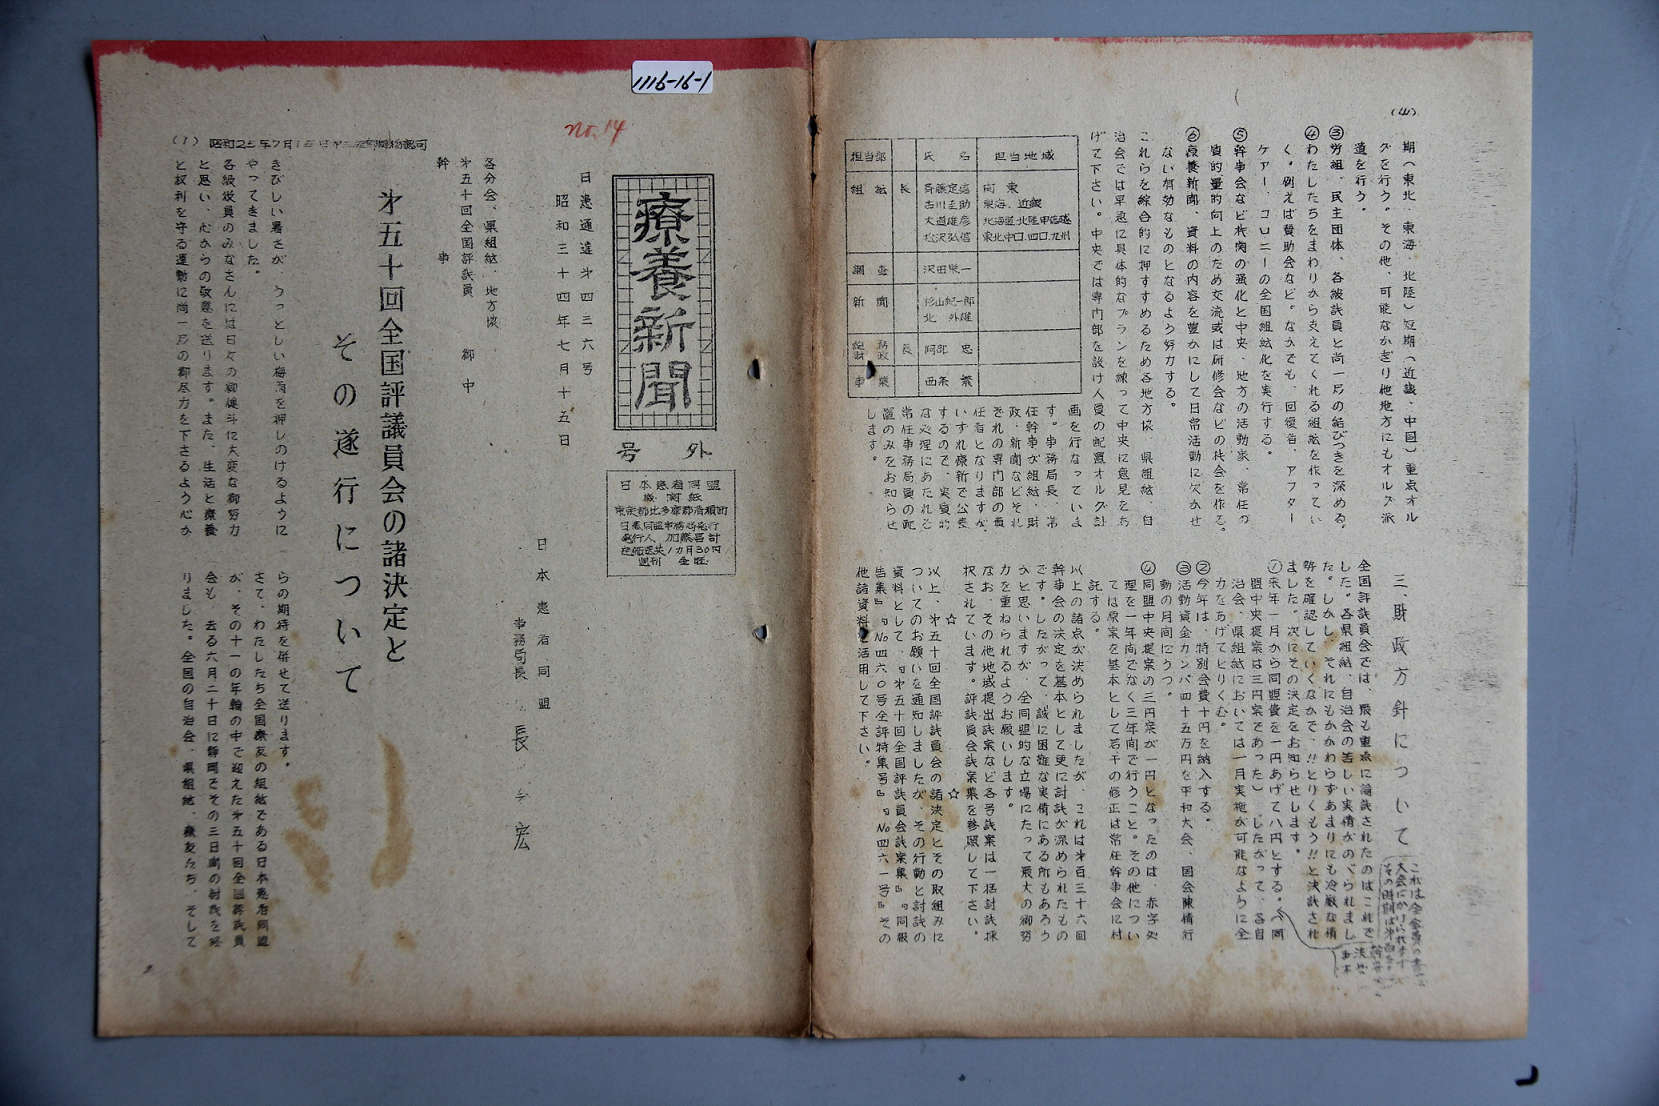 1116-16-1
no.14
療養新聞
号外
日本患者同盟
機関紙
日患通達才四三六号
昭和三十四年七月十五日
各分会、県組紘、地方協
才五十回全国評議員
幹事 御中
日本患者同盟
事務局長
才五十回全国評議員会の諸決定と
その遂行について
きびしい暑さが、うっとしい梅雨を押しのけるように
やってきました。
各級役員のみなさんには日々の御健斗に大変な御努力
と思い、心からの敬意を送ります。また、生活と療養
と权利を守る運動に尚一層の御尽力を下さるよう心か
らの期待を併せて送ります。
さて、わたしたち全国療友の組紘である日本患者同盟
が、その十一の年輪の中で迎えた才五十回全国評議員
会も、去る六月二十日に静岡でその三日間の討議を終
りました。全国の自治会、県組紘、療友たち、そして
(1)
(4)
期(東北、東海、北陸)短期(近畿、中国)重点オル
グを行う。その他、可能なかぎり他地方にもオルグ派
遣を行う。
③労組、民主団体、各級議員と尚一層の結びつきを深める。
④わたしたちをまわりから支えてくれる組紘を作ってい
く。例えば賛助会など。なかでも、回復者、アフター
ケアー、コロニーの全国組紘化を実行する。
⑤幹事会など机関の强化と中央、地方の活動家、常任の
質的量的向上のため交流或は研修会などの机会を作る。
⑥療養新聞、資料の内容を豊かにして日常活動に欠かせ
ない有効なものとなるよう努力する。
これらを綜合的に押すすめるため各地方協、県組紘、自
治会では早急に具体的なプランを練って中央に意見をあ
げて下さい。中央では専門部を設け人員の配置オルグ計
担当部 氏名 担当地域
組紘 長 斉藤定造 関東
古川圭助 東海、近畿
大道雄彦 北海道、北陸、甲信越
松沢弘信 東北、中口、四口、九州
調査 沢田栄一
新聞 杉山紀一郎
北 外雄
総務財政 長 阿部 忠
事業 西条 繁
画を行なっていま
す。事務局長、常
任幹事が組紘、財
政、新聞などそれ
ぞれの専門部の責
任者となりますが、
いずれ療新で公表
するので、実質的
な処理にあたれる
常任事務局員の配
置のみをお知らせ
します。
三、財政方針について
全国評議員会では、最も重点に論議されたのはこれで
した。各県組紘、自治会の苦しい実情がのべられまし
た。しかし、それにもかかわらずあまりにも冷厳な情
勢を確認していくなかで、!!とりくもう!!と決議され
ました。次にその決定をお知らせします。
①来年一月から同盟費を一円あげて八円とする。(同
盟中央提案は三円案であった)したがって、各自
治会、県組紘においては一月実施が可能なように全
力をあげてとりくむ。
②今年は、特別会費十円を納入する。
③活動資金カンパ四十五万円を平和大会、国会陳情行
動の月間にうつ。
④同盟中央提案の三円案が一円となったのは、赤字処
理を一年間でなく三年間で行うこと。その他につい
ては原案を基本として若干の修正は常任幹事会に付
託する。
以上の諸点が決められましたが、これは才百三十六回
幹事会の決定を基本として更に討議が深められたもの
です。したがって、誠に困難な実情にある所もあろう
かと思いますが、全同盟的な立場にたって最大の御努
力を重ねられるようお願いします。
なお、その他地域提出議案など各号議案は一括討議採
択されています。評議員会議案集を参照して下さい。
☆ ☆
以上、才五十回全国評議員会の諸決定とその取組みに
ついてのお願いを通知しましたが、その行動と討議の
資料として、『才五十回全国評議員会議案集』『同報
告集』『No四六〇号全評特集号』『No四六一号』その
他諸資料を活用して下さい。